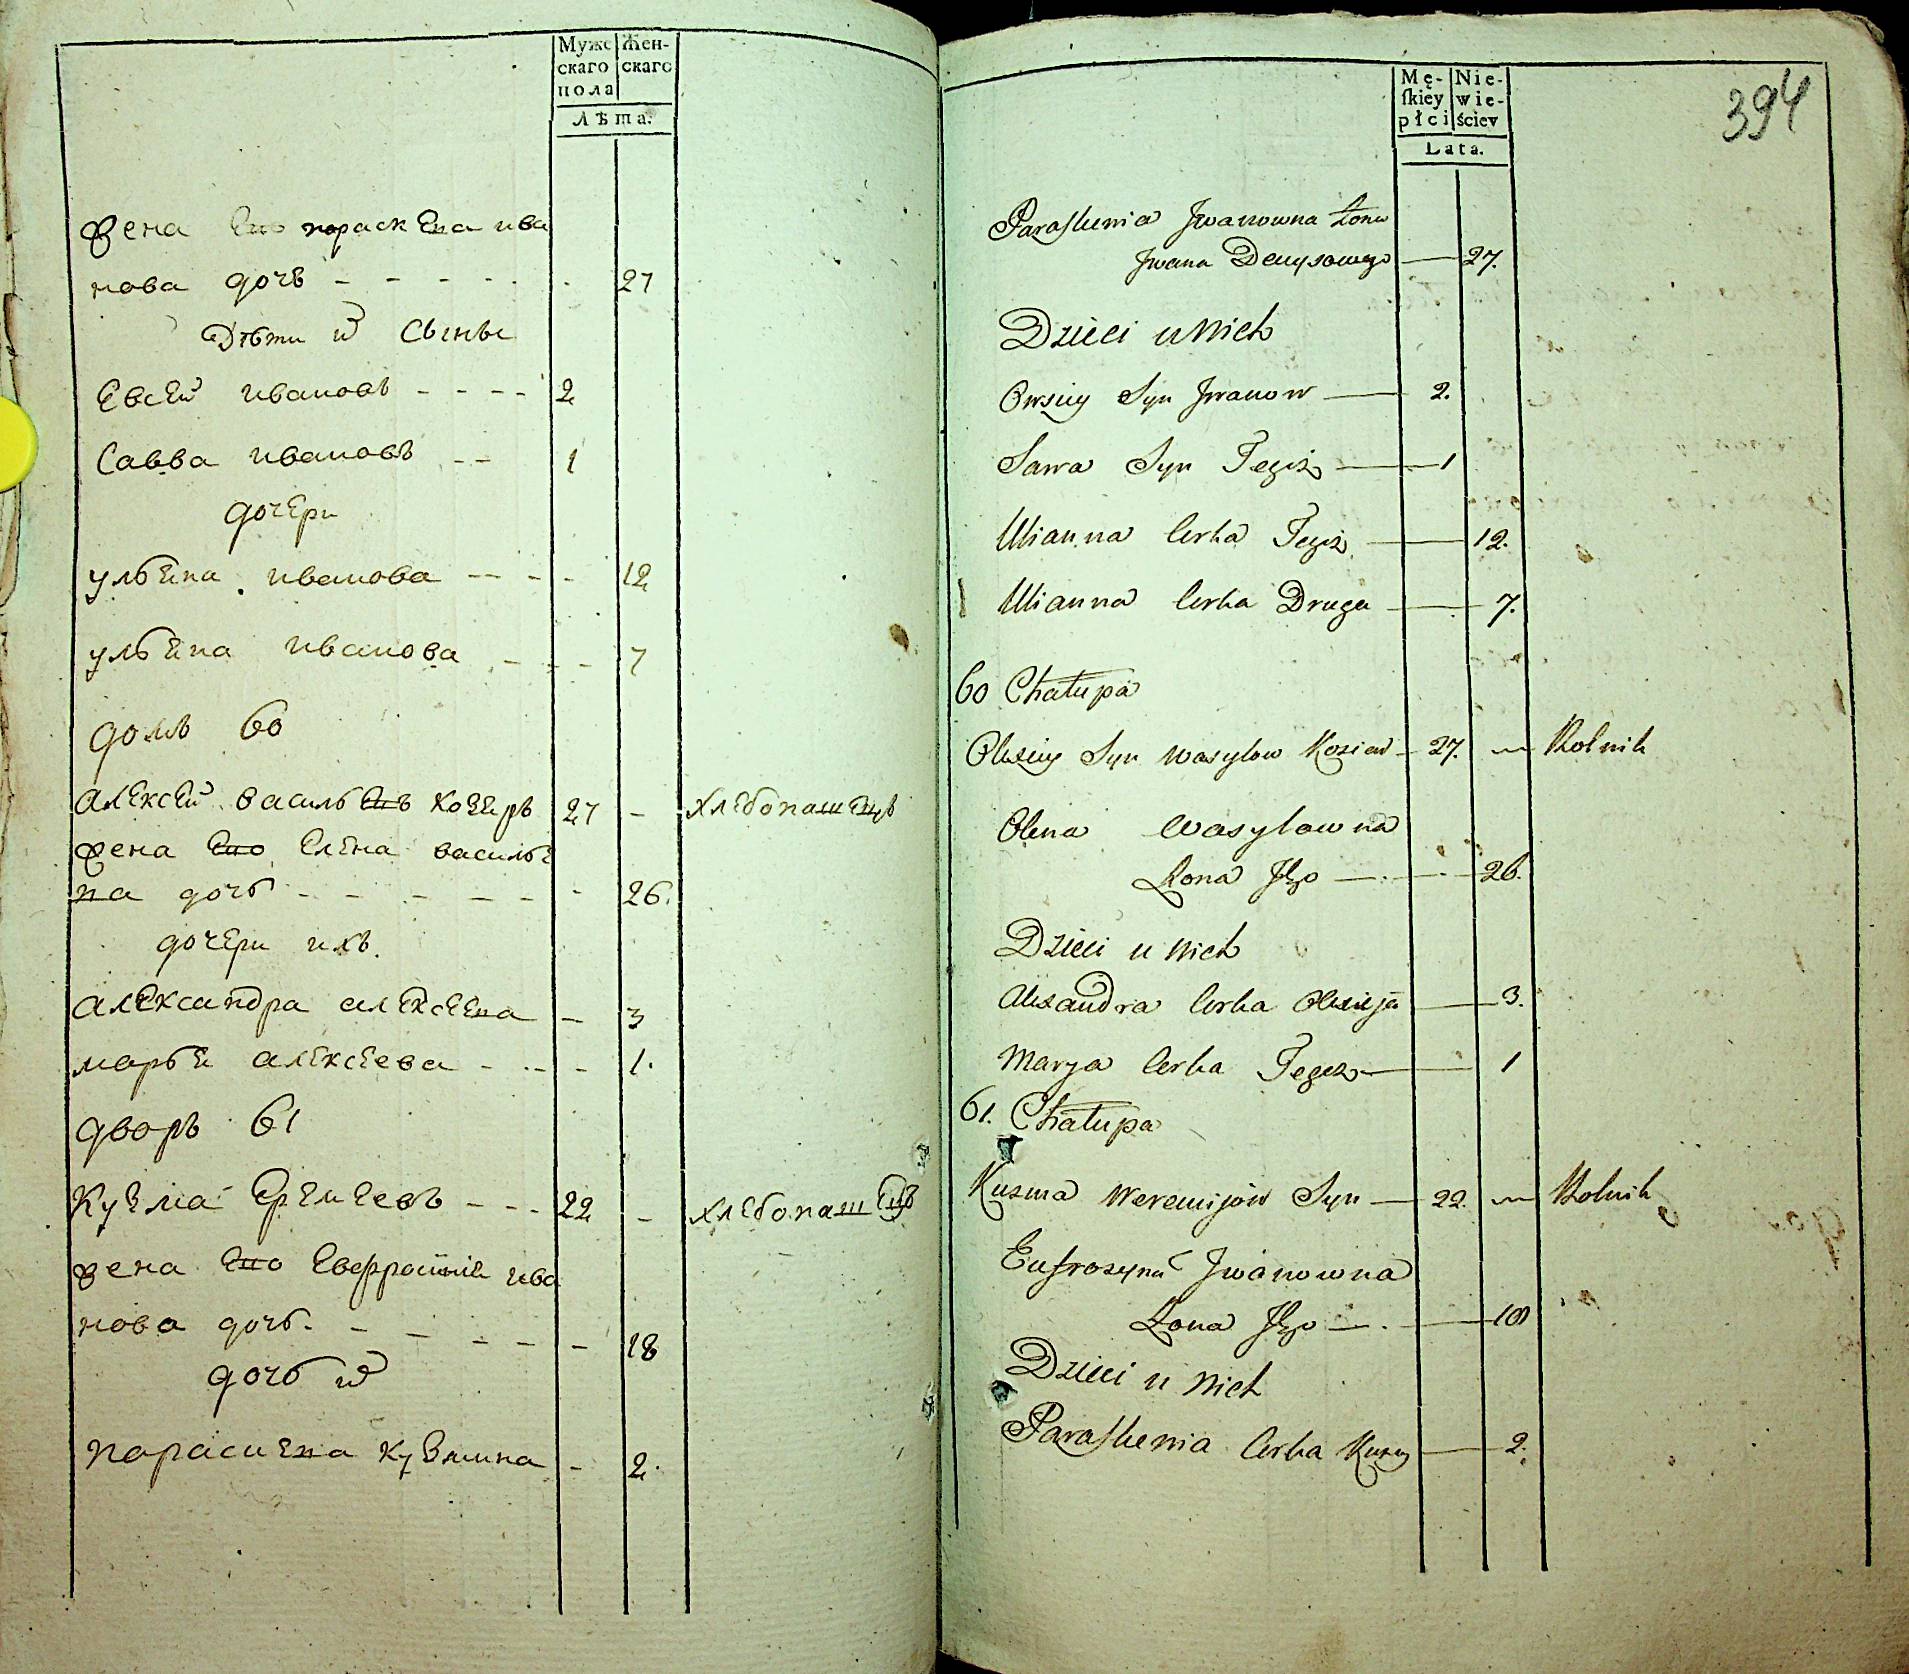 Мужс Жен-
скаго скаго
пола
Лѣта.
жена Ево параскева ива
нова дочь - - - - - - 27
Дѣти и Сыны
Евсей ивановъ - - - - 2
Савва ивановъ - - 1
дочери
ульяна иванова - - - - 12
ульяна иванова - - - 7
домъ 60
Алексей васильевъ Козыръ 27 - хлебопашецъ
жена Ево Елена василье
ва дочь - - - - - - 26.
дочери ихъ.
Александра алексеева - 3
марья алексеева - - - 1.
дворъ 61
Кузма Еремеевъ - - - 22 - хлебопашецъ
жена Ево ива
нова дочь. - - - - - 18
дочь
параскева Кузмина - 2.
394
Mę- Nie-
ſkiey wie-
płci ściey
Lata.
Paraskewia Jwanowna Żona
Jwana Denysowego 27.
Dzieci u Nich
Owsiey Syn Jwanow 2.
Sawa Syn Tegoż 1
Ulianna Corka Tegoż 12.
Ulianna Corka Druga 7.
60 Chałupa
Olexiey Syn Wasylow 27. Rolnik
Olena Wasylowna
Żona Jego 26.
Dzieci u Nich
Alexandra Corka Olexieja 3.
Marya Corka Tegoż 1
61. Chałupa
Kuzma Weremijow Syn 22. Rolnik
Eufrozyna Jwanowna
Żona Jego 18
Dzieci u Nich
Paraskewia Corka Kuzmy 2.